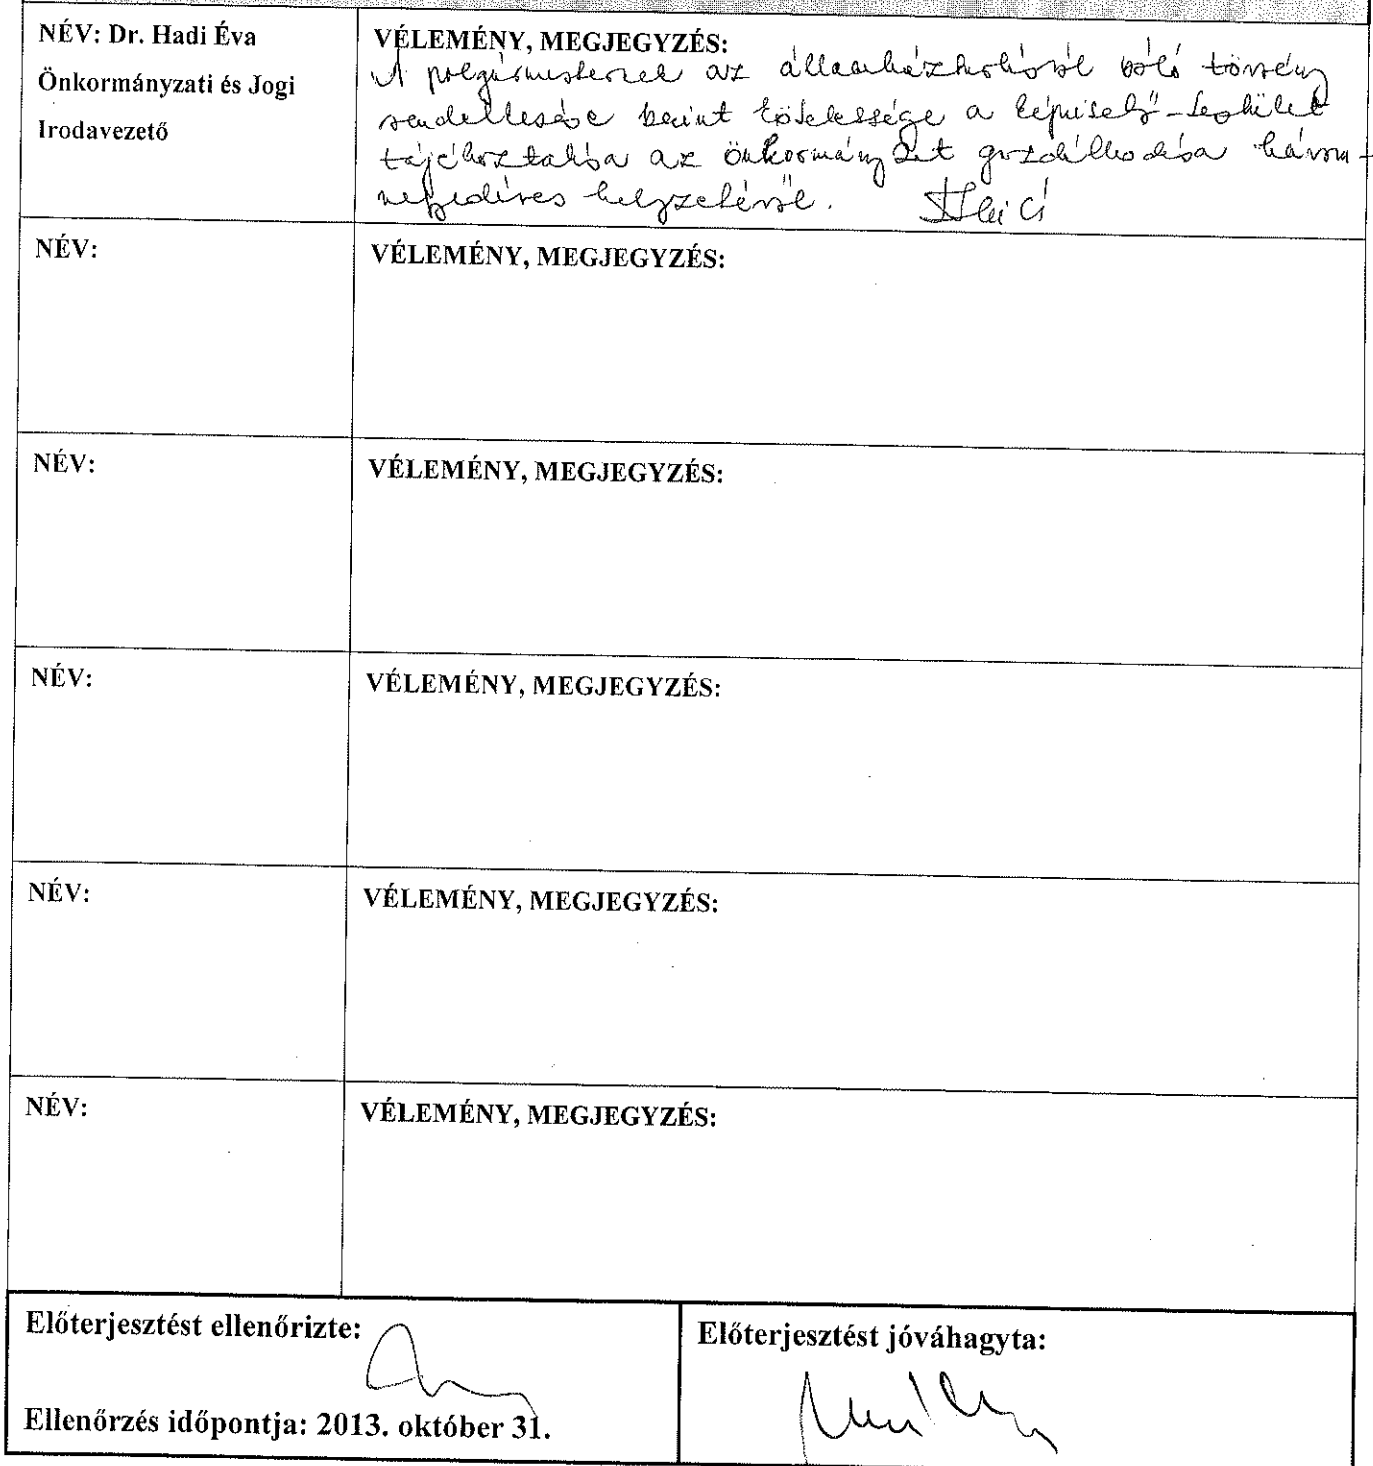 NÉV: Dr. Hadi Éva
Önkormányzati és Jogi
Irodavezető
VÉLEMÉNY, MEGJEGYZÉS:
A polgármesternek az államháztartásról szóló törvény
rendelkezése szerint kötelessége a képviselő-testület
tájékoztatása az önkormányzat gazdálkodása három-
negyedéves helyzetéről.
NÉV:
VÉLEMÉNY, MEGJEGYZÉS:
NÉV:
VÉLEMÉNY, MEGJEGYZÉS:
NÉV:
VÉLEMÉNY, MEGJEGYZÉS:
NÉV:
VÉLEMÉNY, MEGJEGYZÉS:
NÉV:
VÉLEMÉNY, MEGJEGYZÉS:
Előterjesztést ellenőrizte:
Ellenőrzés időpontja: 2013. október 31.
Előterjesztést jóváhagyta: